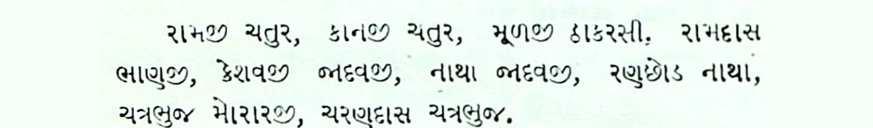 રામજી ચતુર, કાનજી ચતુર, મૂળજી ઠાકરસી, રામદાસ
ભાણજી, કેશવજી જાદવજી, નાથા જાદવજી, રણછોડ નાથા,
ચત્રભુજ મોરારજી, ચરણદાસ ચત્રભુજ.